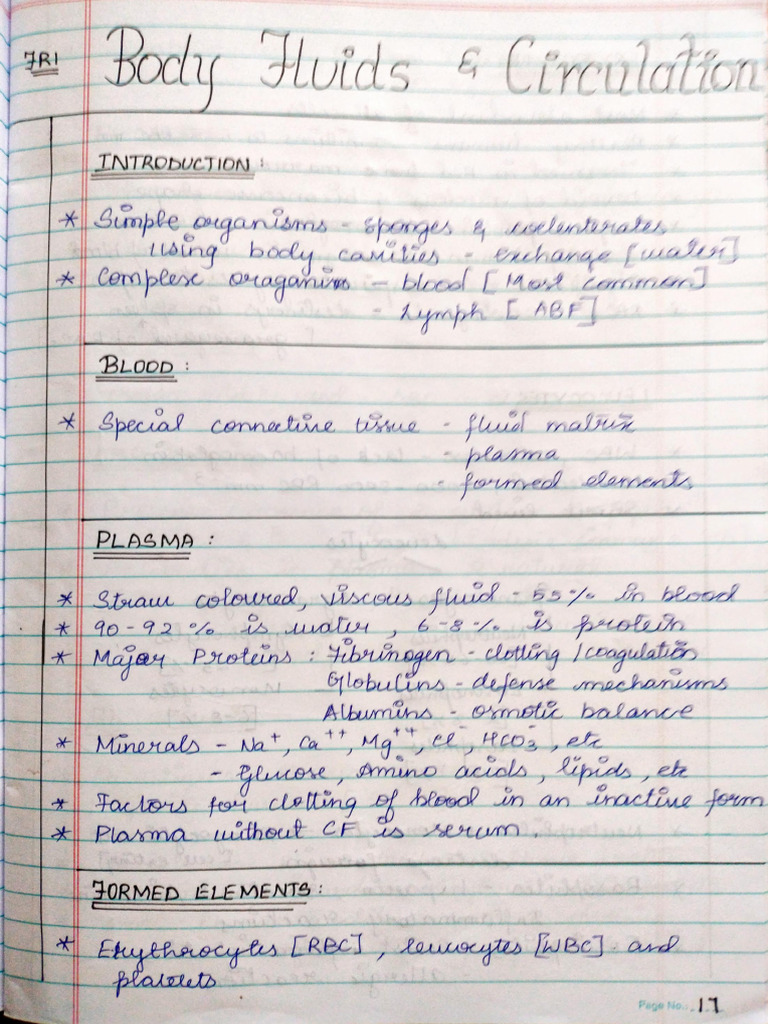 FRI
Body Fluids & Circulation
INTRODUCTION :
* Simple organisms - sponges & coelenterates
using body cavities - exchange [water]
* Complex oraganism - blood [Most common]
- Lymph [ABF]
BLOOD :
* Special connective tissue - fluid matrix
- plasma
- formed elements
PLASMA :
* Straw coloured, viscous fluid - 55% in blood
* 90-92% is water, 6-8% is protein
* Major Proteins : Fibrinogen - clotting /coagulation
Globulins - defense mechanisms
Albumins - osmotic balance
* Minerals - Na⁺, Ca⁺⁺, Mg⁺⁺, Cl⁻, HCO₃⁻, etc
- Glucose, Amino acids, lipids, etc
* Factors for clotting of blood in an inactive form
* Plasma without CF is serum.
FORMED ELEMENTS :
* Erythrocytes [RBC], leucocytes [WBC] and
platelets
Page No.: 17